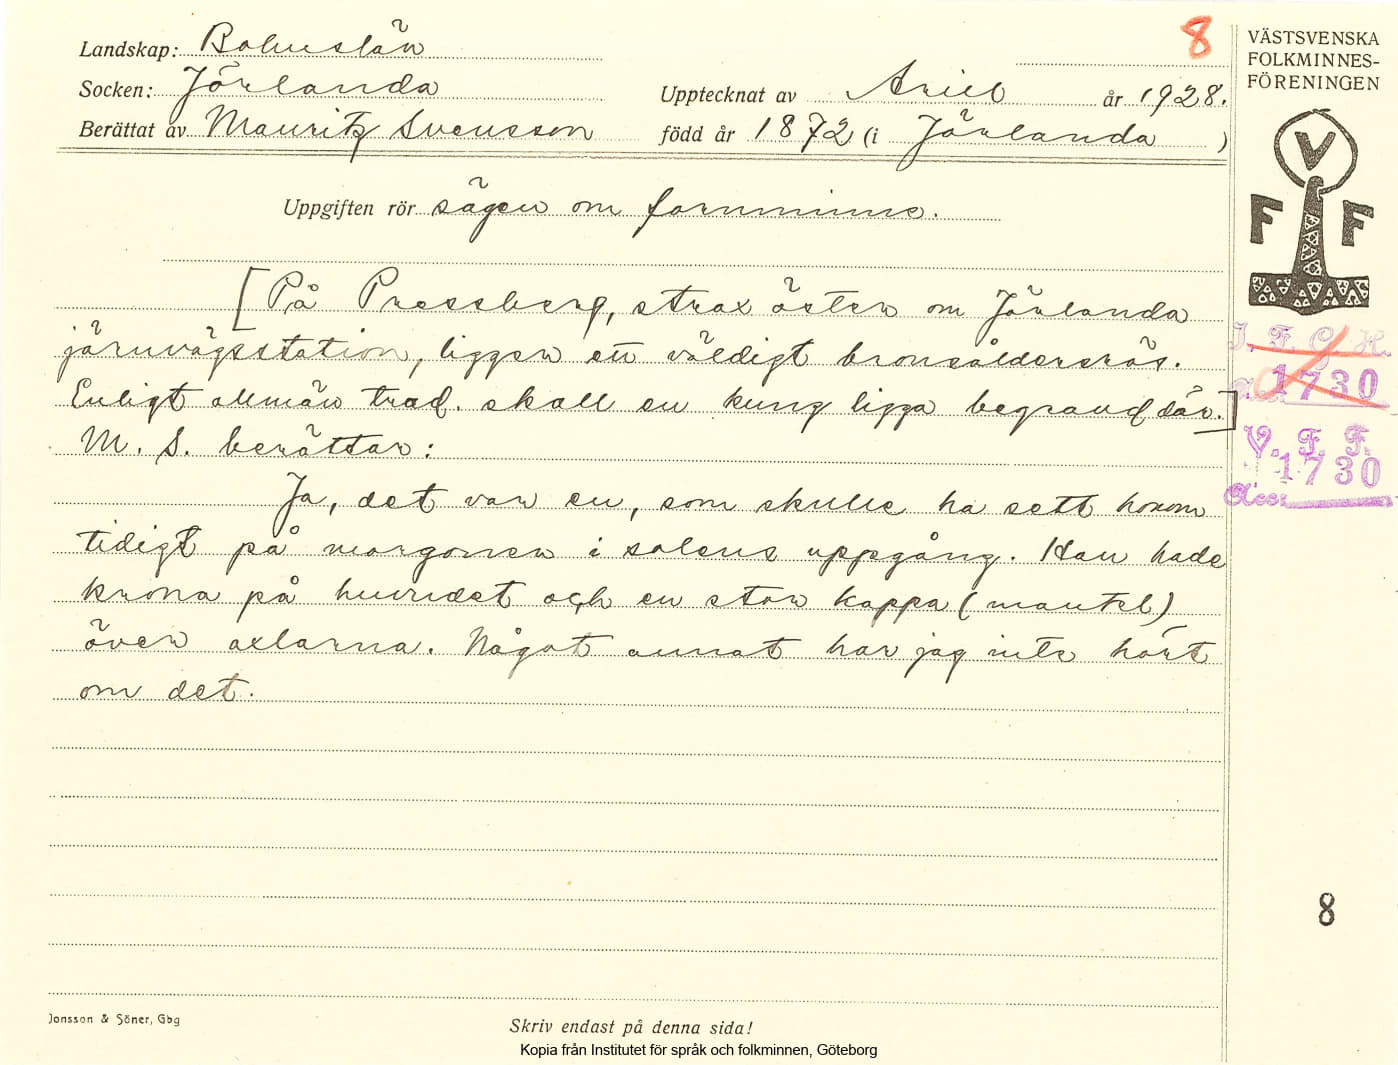 Landskap: Bohuslän
8
Socken: Jörlanda
Upptecknat av Arill år 1928.
Berättat av Mauritz Svensson född år 1872 (i Jörlanda)
Uppgiften rör sägen om fornminne.
[På Pressberg, strax öster om Jörlanda
järnvägsstation, ligger ett väldigt bronsåldersrös.
Enligt allmän trad. skall en kung ligga begravd där.]
M. S. berättar:
Ja, det var en, som skulle ha sett honom
tidigt på morgonen i solens uppgång. Han hade
krona på huvudet och en stor kappa (mantel)
över axlarna. Något annat har jag inte hört
om det.
VÄSTSVENSKA
FOLKMINNES-
FÖRENINGEN
V
F F
I. F. G. H.
1730
V. F. F.
1730
Acc:
8
Jonsson & Söner, Gbg
Skriv endast på denna sida!
Kopia från Institutet för språk och folkminnen, Göteborg